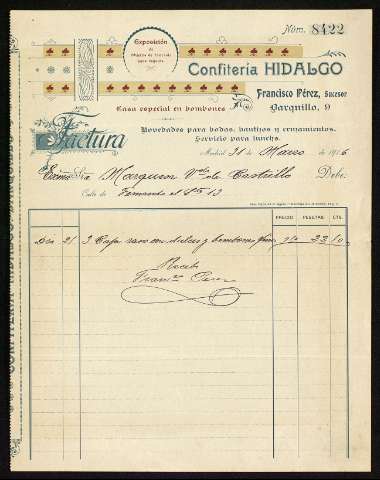 Núm. 8422
Exposición
de
Objetos de fantasía
para regalos
Confitería HIDALGO
Francisco Pérez, Sucesor
Barquillo, 9
Casa especial en bombones
Factura
Novedades para bodas, bautizos y cruzamientos.
Servicio para lunchs.
Madrid 21 de Marzo de 1916
Sra Marquesa Vda de Castrillo Debe:
Calle de Fernando el Sto 13
PRECIO PESETAS CTS.
Día 21 3 Cajas raso con dulces y bombones finos 33 10
Recibí
Franco Perez